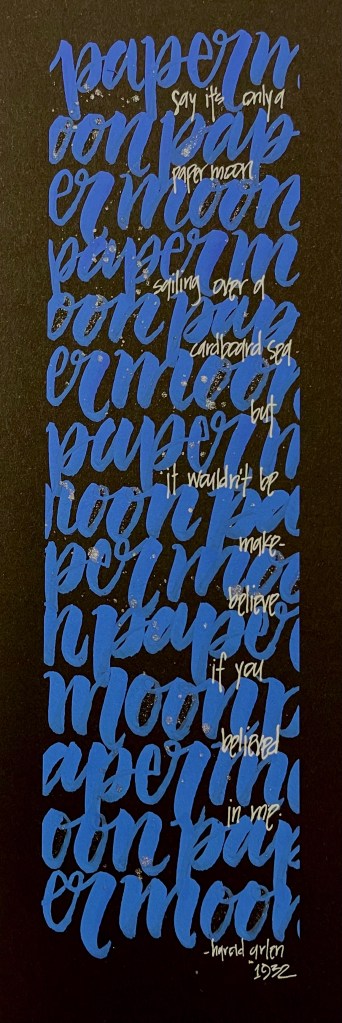 paperm
say it's only a
oon pap
paper moon
er moon
paper m
sailing over a
oon pap
cardboard sea
er moon
but
paper m
it wouldn't be
moon pa
make-
per moo
believe
n paper
if you
moon p
believed
aper mo
in me.
oon pap
er moon
- harold arlen
1932